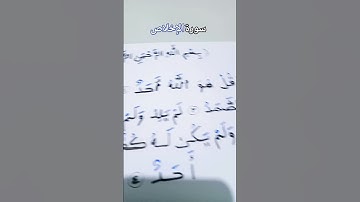 سورة الإخلاص
بسم الله الرحمن
قل هو الله أحد
لم يلد ولم
ولم يكن له
أحد ٤